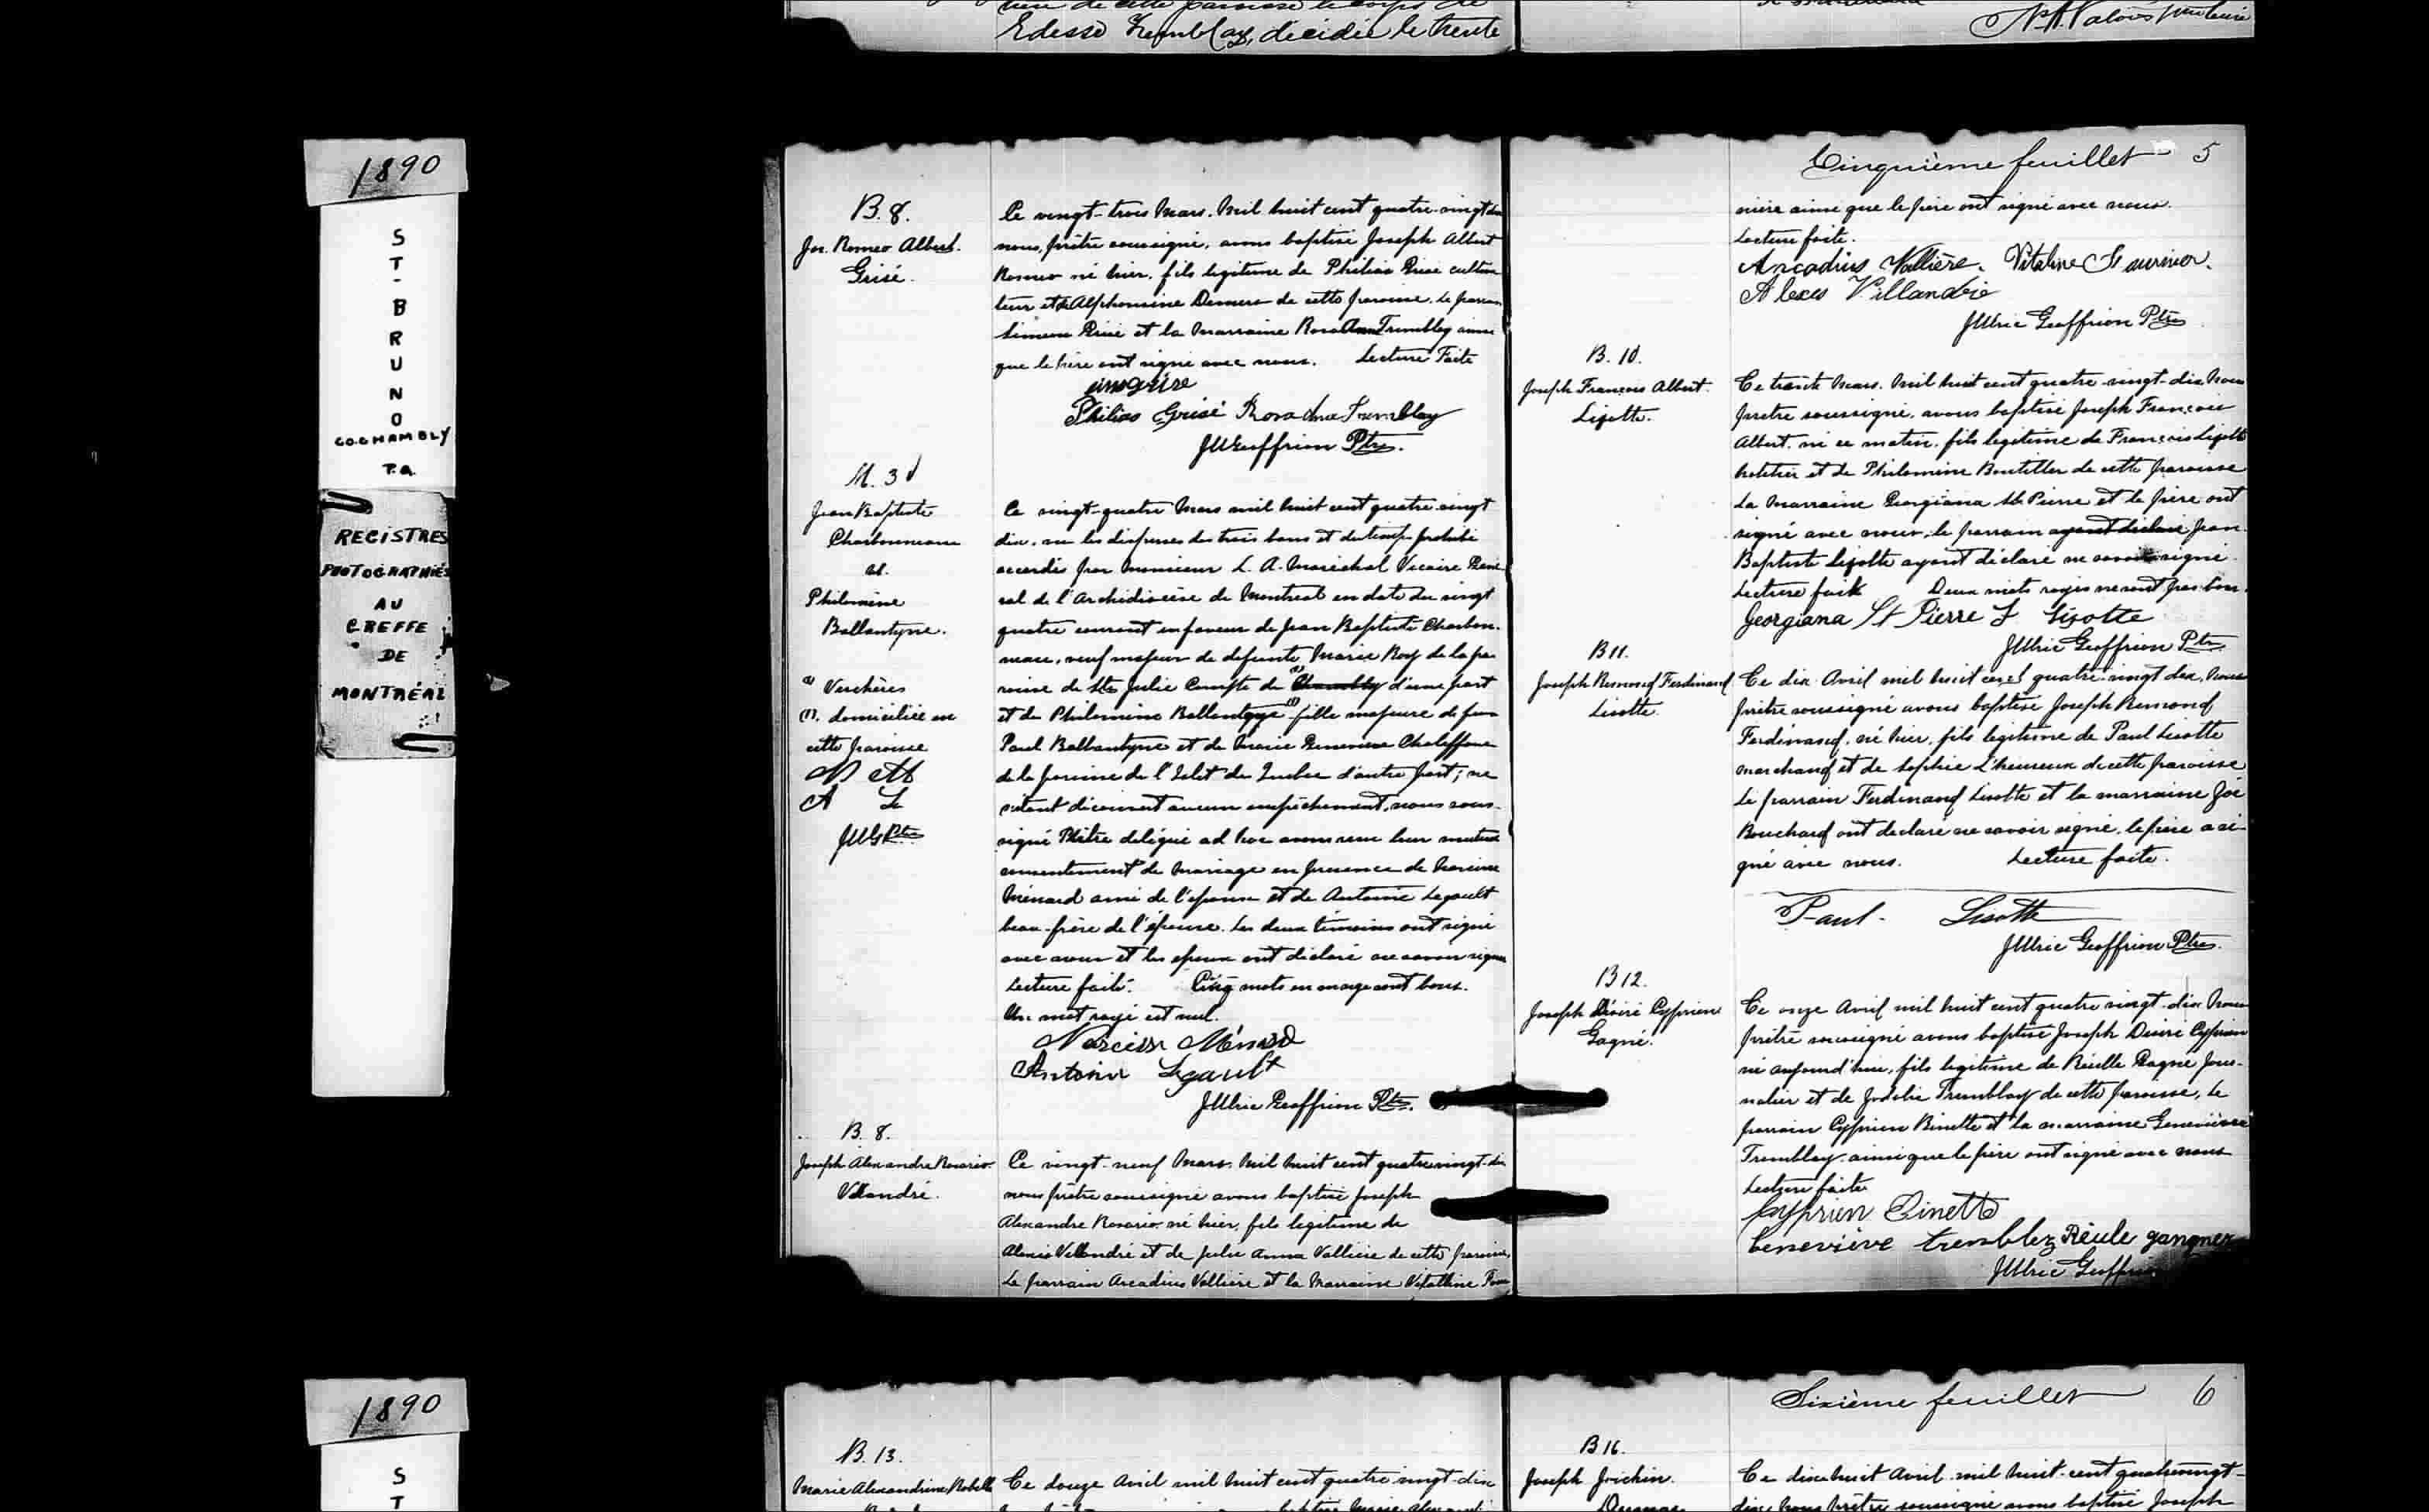 Edesse Tremblay, décédée le trente
N.A. Valois
1890
ST-BRUNO
CO. CHAMBLY
P.Q.
REGISTRES
PHOTOGRAPHIÉS
AU
GREFFE
DE
MONTRÉAL
B. 8.
Jos. Romeo Albert.
Grisé.
Ce vingt-trois Mars. Mil huit cent quatre-vingt dix
nous, prêtre soussigné, avons baptisé Joseph Albert
Romeo né hier, fils legitime de Philias Grisé cultiva
teur et de Alphonsine Demers de cette paroisse. Le parrain
Simeon Grisé et la Marraine Rose Anna Tremblay ainsi
que le père ont signé avec nous. Lecture Faite
Philias Grisé Rosa Anna Tremblay
JUGeoffrion Ptre.
M. 3
Jean Baptiste
Charbonneau
et.
Philomène
Ballantyne.
Verchères
(1). domiciliée en
cette paroisse
N M
A L
JUG Ptre
Ce vingt-quatre Mars mil huit cent quatre-vingt
dix, vu les dispenses des trois bans et du temps prohibé
accordés par Monsieur L. A. Maréchal Vicaire Géné
ral de l'Archidiocèse de Montreal en date du vingt
quatre courant en faveur de Jean Baptiste Charbon-
neau, veuf majeur de defunte Marie Roy de la pa
roisse de Ste Julie Compte de Chambly d'une part
et de Philomène Ballantyne (1) fille majeure de feu
Paul Ballantyne et de Marie Genevieve Chaleffoue
de la paroisse de l'Islet de Quebec d'autre part; ne
s'étant découvert aucun empêchement, nous sous-
signé Prêtre delégué ad hoc avons recu leur mutuel
consentement de mariage en presence de Narcisse
Ménard ami de l'epoux et de Antoine Legault
beau-frère de l'épouse. Les deux témoins ont signé
avec nous et les epoux ont déclaré ne savoir signer
Lecture faite. Cinq mots en marge sont bons.
Un mot rayé est nul.
Narcisse Ménard
Antoine Legault
JUlric Geoffrion Ptre.
B. 8.
Joseph Alexandre Rosario
Villandré.
Ce vingt-neuf Mars. Mil huit cent quatre vingt-dix
nous prêtre soussigné avons baptisé Joseph
Alexandre Rosario né hier, fils legitime de
Alexis Villandré et de Julie Anna Vallière de cette paroisse,
Le parrain Arcadius Vallière et la Marraine Vitaline Four
Cinquième feuillet 5
nière ainsi que le père ont signé avec nous.
Lecture faite.
Arcadius Vallière. Vitaline Fournier.
Alexis Villandrie
JUlric Geoffrion Ptre
B. 10.
Joseph François Albert
Lizotte.
Ce trente Mars. Mil huit cent quatre-vingt-dix Nous
prêtre soussigné, avons baptisé Joseph François
Albert. né ce matin. fils legitime de François Lizotte
hotelier et de Philomène Boutiller de cette paroisse
La Marraine Georgiana St Pierre et le père ont
signé avec nous, le parrain ayant déclaré Jean
Baptiste Lizotte ayant déclaré ne savoir signé.
Lecture faite Deux mots rayés ne sont pas bons.
Georgiana St Pierre F Lizotte
JUlric Geoffrion Ptre
B 11.
Joseph Remond Ferdinand
Lizotte.
Ce dix Avril mil huit cent quatre-vingt dix, Nous
prêtre soussigné avons baptisé Joseph Remond
Ferdinand. né hier, fils legitime de Paul Lizotte
marchand et de Sophie L'heureux de cette paroisse
Le parrain Ferdinand Lizotte et la marraine Zoé
Bouchard ont declaré ne savoir signé. le père a si-
gné avec nous. Lecture faite.
Paul Lizotte
JUlric Geoffrion Ptre.
B 12.
Joseph Désiré Cyprien
Gagné.
Ce onze Avril mil huit cent quatre vingt-dix Nous
prêtre soussigné avons baptisé Joseph Desiré Cyprien
né aujourd'hui, fils legitime de Réulle Gagné jour-
nalier et de Zodelie Tremblay de cette paroisse, Le
parrain Cyprien Binette et la marraine Geneviève
Tremblay ainsi que le père ont signé avec nous
Lecture faite
Cyprien Binette
Geneviève tremblez Réule gangner
JUlric Geoffrion
1890
S
T
B. 13.
Marie Alexandrine
Ce douze Avril mil huit cent quatre vingt-dix
Sixième feuillet 6
B 16.
Joseph Joichin.
Ce dix huit Avril mil huit-cent quatre vingt-
dix, Nous Prêtre soussigné avons baptisé Joseph